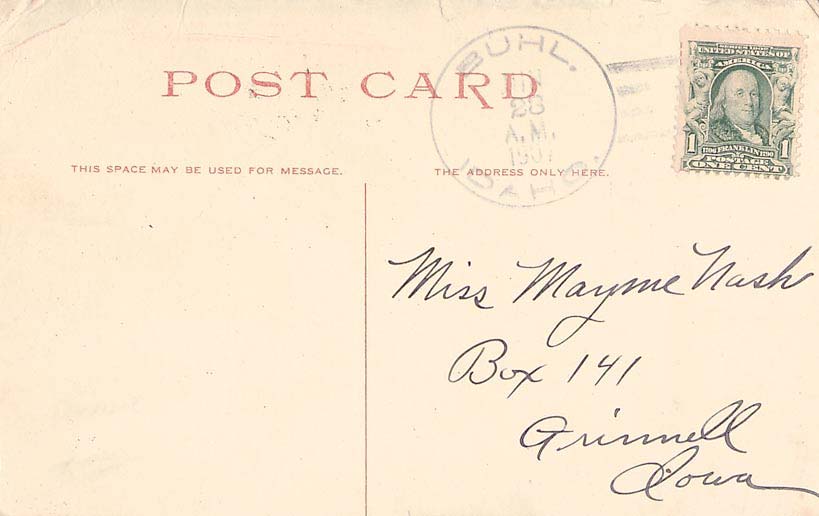 POST CARD
BUHL.
28
A.M.
1907
IDAHO.
SERIES 1902
UNITED STATES OF
AMERICA
1 1790 FRANKLIN 1790 1
POSTAGE
ONE CENT
THIS SPACE MAY BE USED FOR MESSAGE.
THE ADDRESS ONLY HERE.
Miss Mayme Nash
Box 141
Grinnell
Iowa